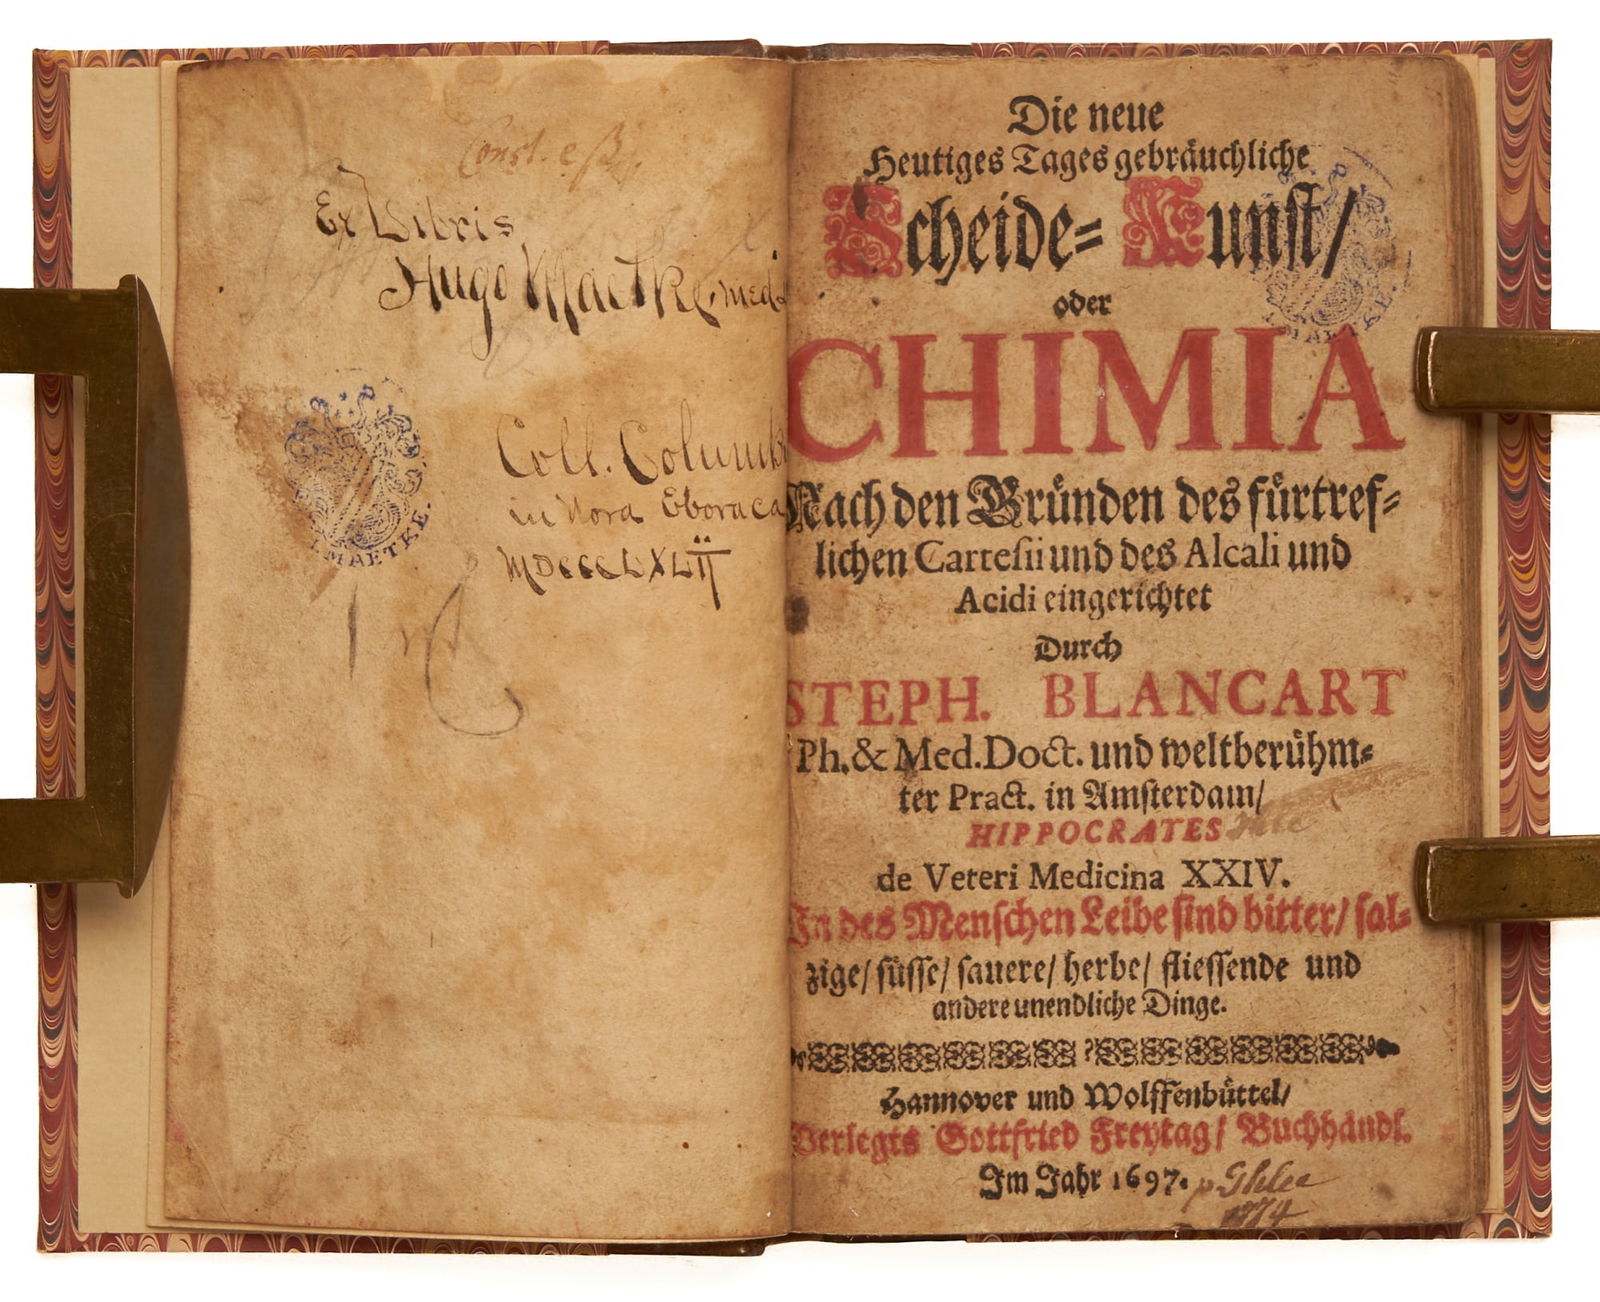 Const.
Ex Libris
Hugo Maetke, med.
Coll. Columb
in Nova Eboraca
MDCCCLXLII
MAETKE.
Die neue
Heutiges Tages gebräuchliche
Scheide= Kunst/
oder
CHIMIA
Nach den Gründen des fürtref=
lichen Cartesii und des Alcali und
Acidi eingerichtet
Durch
STEPH. BLANCART
Ph. & Med. Doct. und weltberühm=
ter Pract. in Amsterdam/
HIPPOCRATES
de Veteri Medicina XXIV.
In des Menschen Leibe sind bitter/ sal=
zige/ süsse/ sauere/ herbe/ fliessende und
andere unendliche Dinge.
Hannover und Wolffenbüttel/
Verlegts Gottfried Freytag/ Buchhändl.
Im Jahr 1697.
MAETKE.